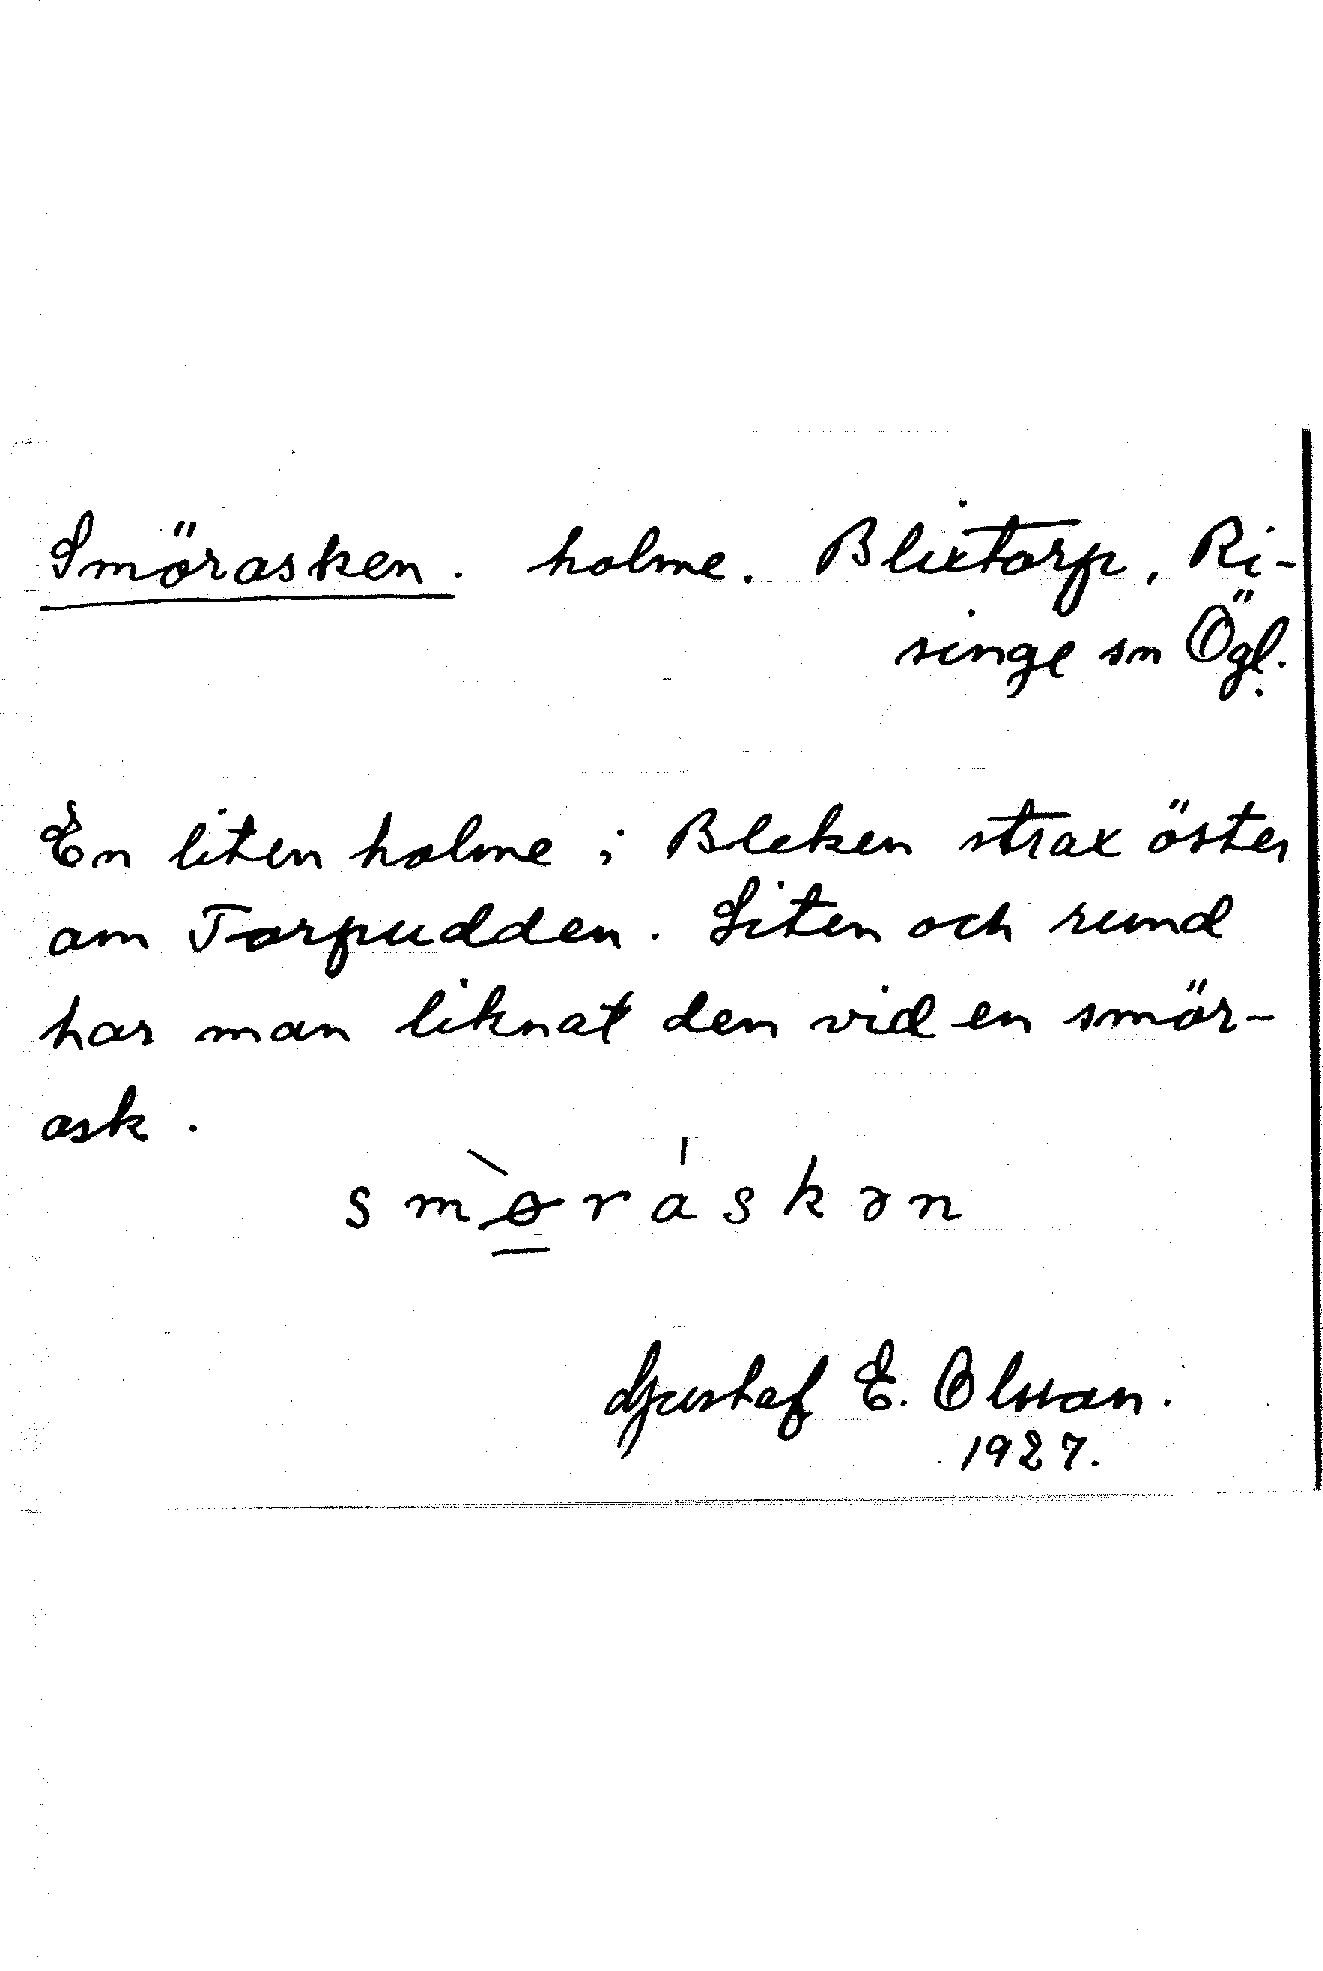 Smörasken. holme. Blixtorp, Ri-
singe sn Ögl.
En liten holme i Bleken strax öster
om Torpudden. Liten och rund
har man liknat den vid en smör-
ask.
smø̀ráskən
Gustaf E. Olsson.
1927.